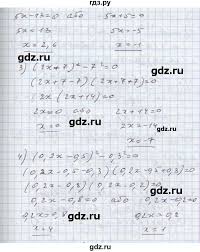 гдз.ру
5x-13=0 або 5x+5=0
5x=13 5x=-5
x=2,6 x=-1
3) (2x+7)²-7²=0
(2x+7-7)(2x+7+7)=0
2x(2x+14)=0
2x=0 або 2x+14=0
x=0 2x=-14
x=-7
4) (0,2x-0,5)²-0,3²=0
(0,2x-0,5-0,3)(0,2x-0,5+0,3)=0
(0,2x-0,8)(0,2x-0,2)=0
0,2x-0,8=0 або 0,2x-0,2=0
0,2x=0,8 0,2x=0,2
x=4 x=1
gdz.ru
gdz.ru
gdz.ru
gdz.ru
gdz.ru
gdz.ru
gdz.ru